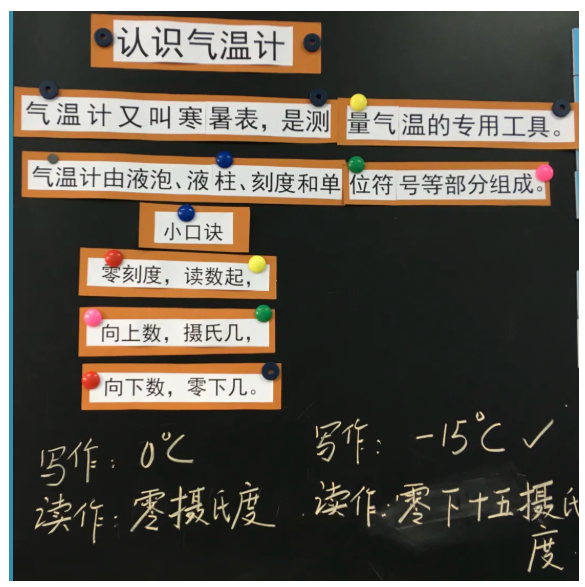 认识气温计
气温计又叫寒暑表，是测量气温的专用工具。
气温计由液泡、液柱、刻度和单位符号等部分组成。
小口诀
零刻度，读数起，
向上数，摄氏几，
向下数，零下几。
写作：0℃
读作：零摄氏度
写作：-15℃ ✓
读作：零下十五摄氏
度